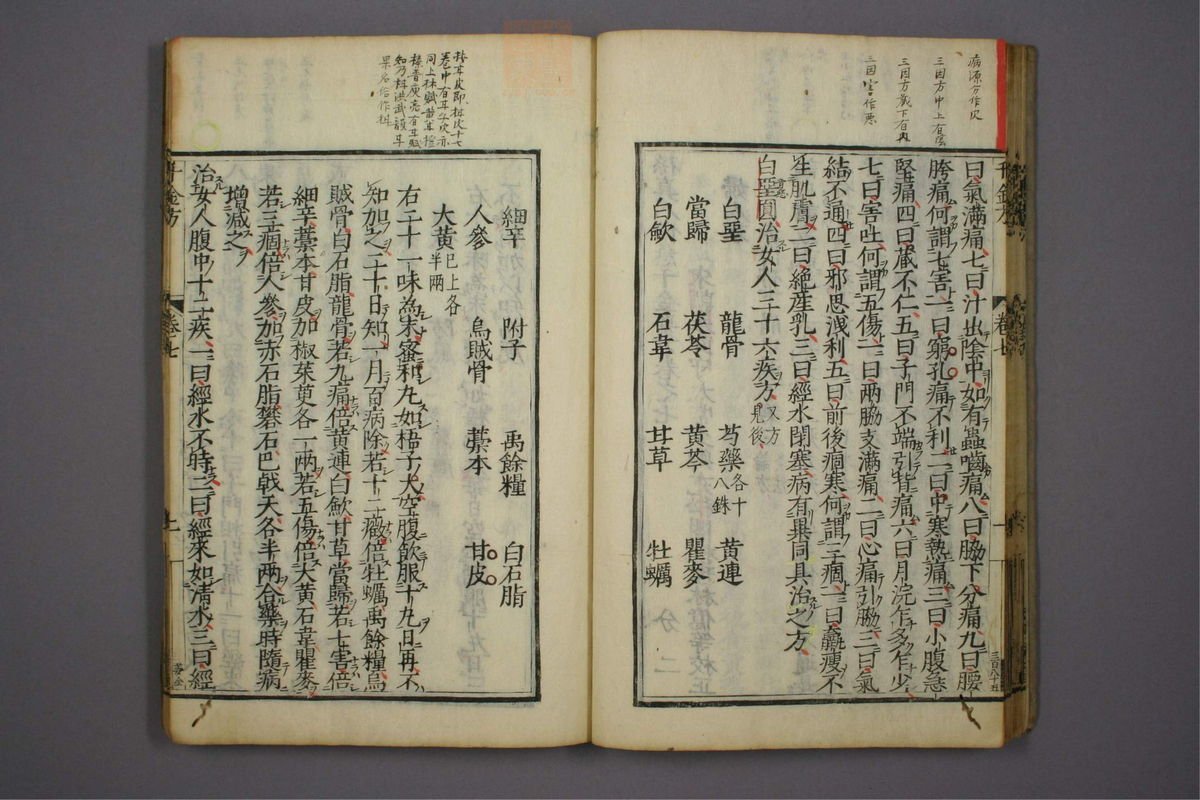 病源分作次
三因方中上有陰
三因方載下有再
三因害作悪
曰氣滿痛七曰汁出陰中如有蟲嚙痛八曰脇下分痛九曰腰
胯痛何謂七害一曰窮孔痛不利二曰中寒熱痛三曰小腹急
堅痛四曰藏不仁五曰子門不端引背痛六曰月浣乍多乍少
七曰害吐何謂五傷一曰兩脇支滿痛二曰心痛引脇三曰氣
結不通四曰邪思洩利五曰前後痼寒何謂三痼一曰羸瘦不
生肌膚二曰絶産乳三曰經水閉塞病有異同具治之方
白堊圓治女人三十六疾方又方見後
白堊 龍骨 芍藥各十八銖 黄連
當歸 茯苓 黄芩 瞿麥
白歛 石韋 甘草 牡蠣
細辛 附子 禹餘糧 白石脂
人參 烏賊骨 藁本 甘皮
大黄已上各半兩
右二十一味為末蜜和丸如梧子大空腹飲服十九日再不
知加之二十日知一月百病除若十二癥倍牡蠣禹餘糧烏
賊骨白石脂龍骨若九痛倍黄連白歛甘草當歸若七害倍
細辛藁本甘皮加椒茱萸各一兩若五傷倍大黄石韋瞿麥
若三痼倍人參加赤石脂礬石巴戟天各半兩合藥時隨病
增減之
治女人腹中十二疾一曰經水不時二曰經來如清水三曰經
千金方
卷七
千金方
卷七
一